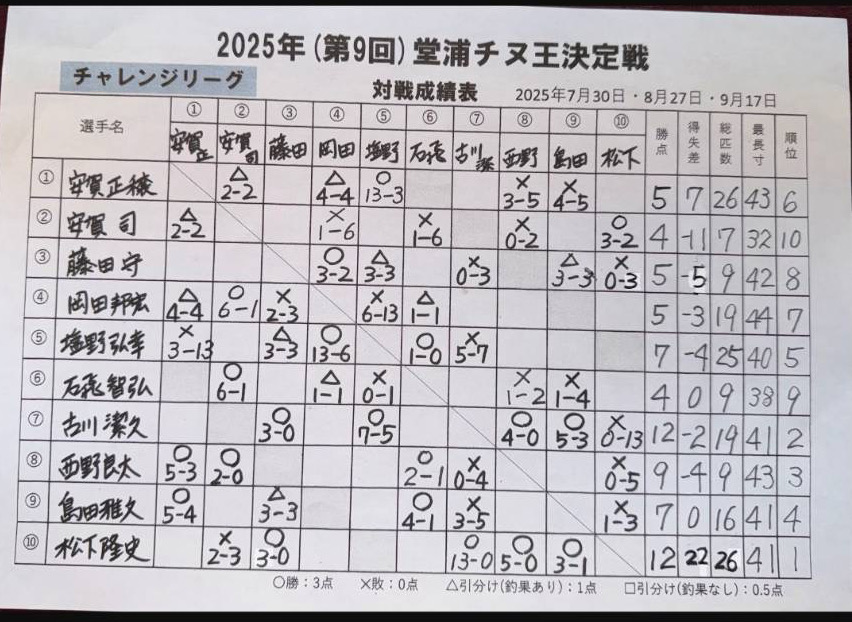 2025年(第9回)堂浦チヌ王決定戦
チャレンジリーグ
対戦成績表 2025年7月30日・8月27日・9月17日
選手名 ① ② ③ ④ ⑤ ⑥ ⑦ ⑧ ⑨ ⑩ 勝点 得失差 総匹数 最長寸 順位
安賀正 安賀司 藤田 岡田 塩野 石飛 古川潔 西野 島田 松下
① 安賀正穂 △2-2 △4-4 ○13-3 ×3-5 ×4-5 5 7 26 43 6
② 安賀司 △2-2 ×1-6 ×1-6 ×0-2 ○3-2 4 -11 7 32 10
③ 藤田守 ○3-2 △3-3 ×0-3 △3-3 ×0-3 5 -5 9 42 8
④ 岡田邦宏 △4-4 ○6-1 ×2-3 ×6-13 △1-1 5 -3 19 44 7
⑤ 塩野弘幸 ×3-13 △3-3 ○13-6 ○1-0 ×5-7 7 -4 25 40 5
⑥ 石飛智弘 ○6-1 △1-1 ×0-1 ×1-2 ×1-4 4 0 9 38 9
⑦ 古川潔久 ○3-0 ○7-5 ○4-0 ○5-3 ×0-13 12 -2 19 41 2
⑧ 西野良太 ○5-3 ○2-0 ○2-1 ×0-4 ×0-5 9 -4 9 43 3
⑨ 島田雅久 ○5-4 △3-3 ○4-1 ×3-5 ×1-3 7 0 16 41 4
⑩ 松下隆史 ×2-3 ○3-0 ○13-0 ○5-0 ○3-1 12 22 26 41 1
○勝：3点 ×敗：0点 △引分け(釣果あり)：1点 □引分け(釣果なし)：0.5点